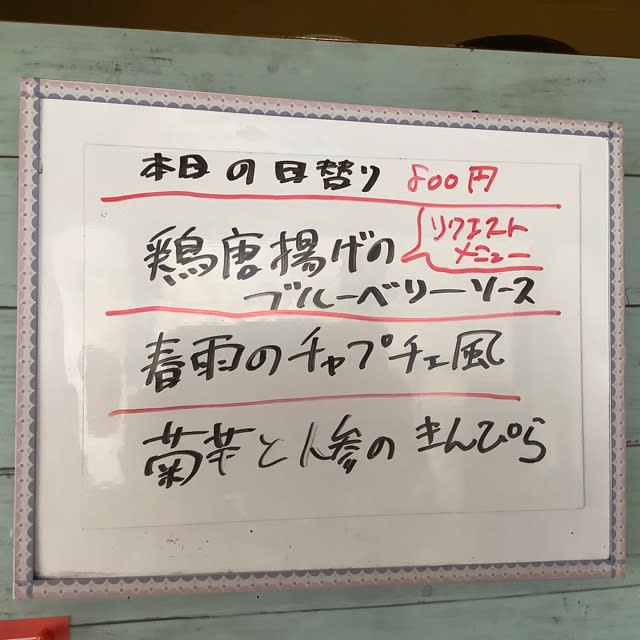 本日の日替り 800円
鶏唐揚げの
リクエスト
メニュー
ブルーベリーソース
春雨のチャプチェ風
菊芋と人参のきんぴら